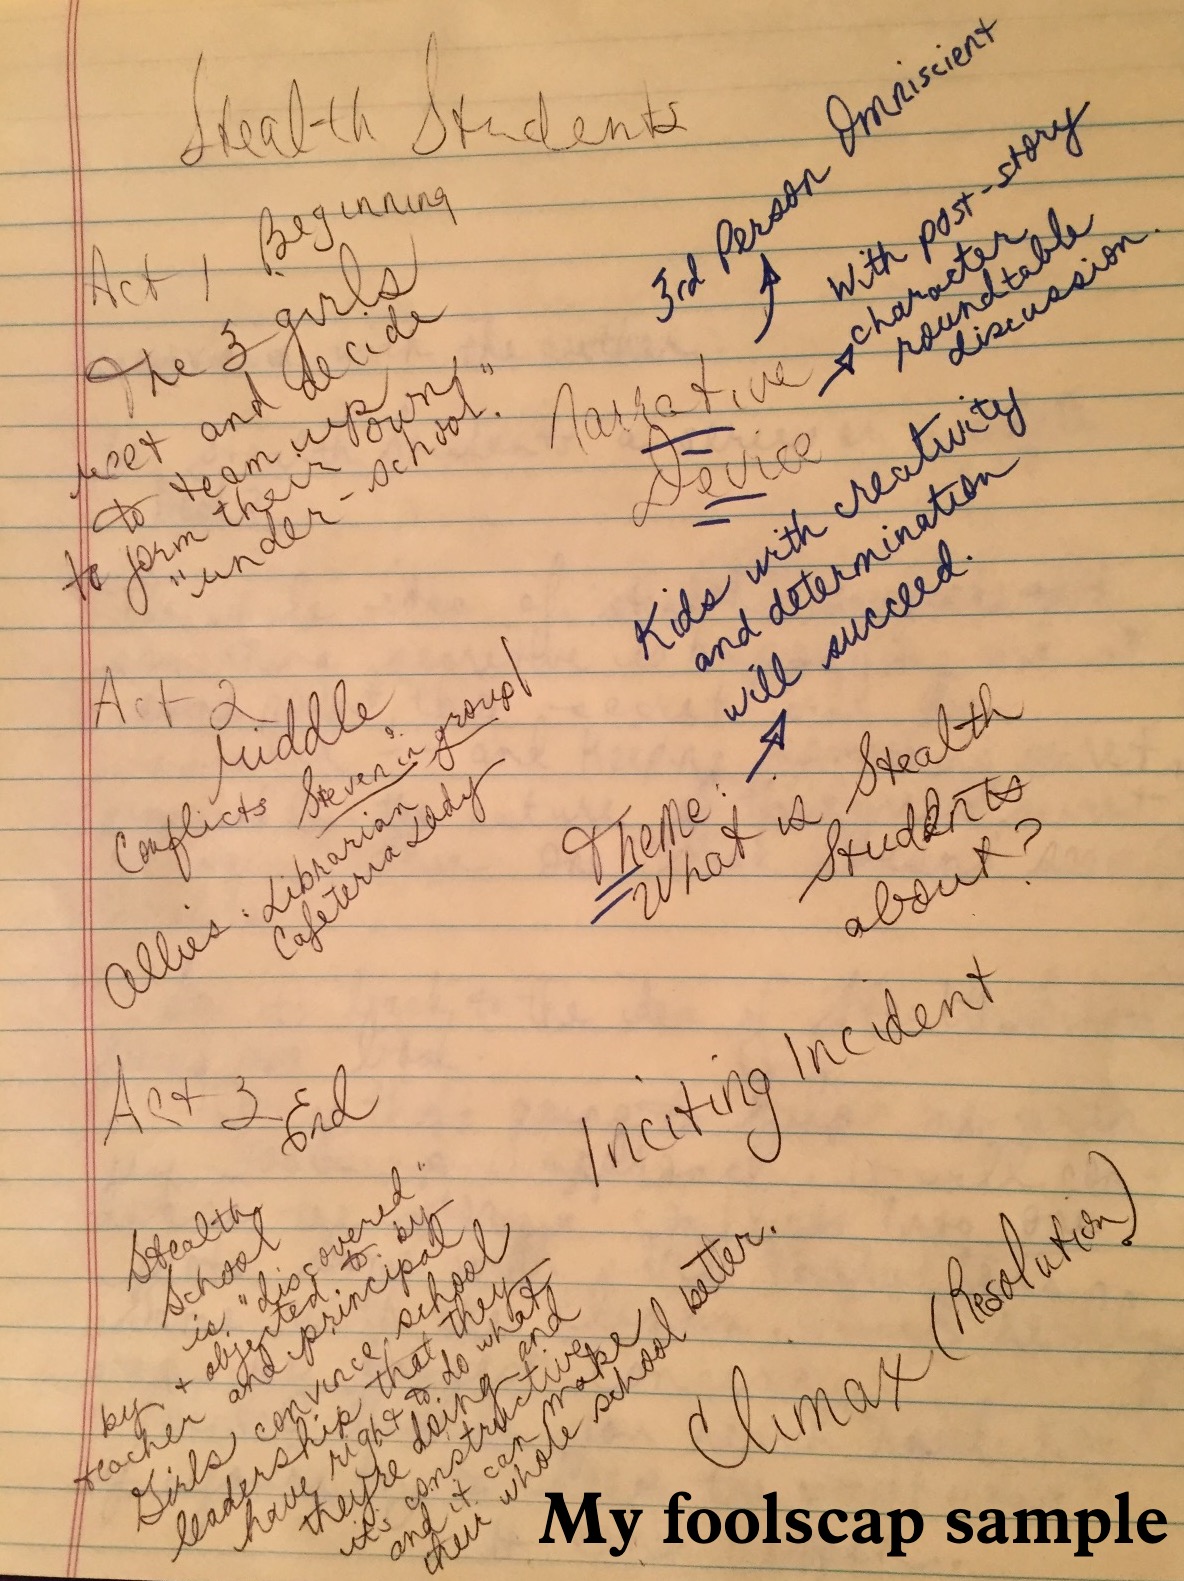 Stealth Students
Act 1 Beginning
The 3 girls
meet and decide
to team up
to form their own
"under-school."
Act 2
Middle
Conflicts Steven in group!
Allies: Librarian
Cafeteria Lady
Act 3
End
Stealth
School
is "discovered"
by + objected to by
teacher and principal
Girls convince school
leadership that they
have right to do what
they're doing and
it's constructive
and it can make
their whole school better.
3rd Person Omniscient
With post-story
character
roundtable
discussion.
Narrative
Device
Kids with creativity
and determination
will succeed.
Theme:
What is Stealth
Students
about?
Inciting Incident
Climax (Resolution)
My foolscap sample